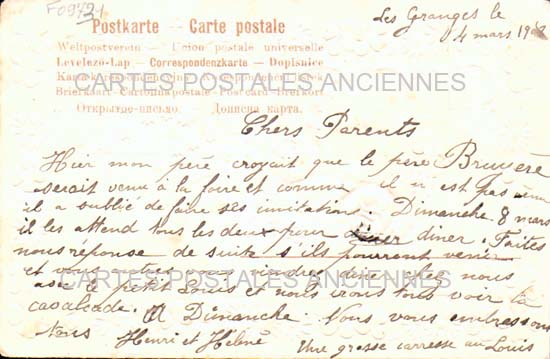 F09421
Les Granges le
4 mars 19
Postkarte — Carte postale
Weltpostverein — Union postale universelle
Levelező-Lap — Correspondenzkarte — Dopisnice
CARTES POSTALES ANCIENNES
Brierkaart — Cartolina postale — Postcard — Brefkort
Открытое письмо — Дописна карта.
Chers Parents
Hier mon père croyait que le père Bruyère
serait venu à la foire et comme il n'est pas venu
il a oublié de faire ses invitations. Dimanche 8 mars
il les attend tous les deux pour diner. Faites
nous réponse de suite s'ils pourront venir
CARTES POSTALES ANCIENNES
et vous autres vous viendrez diner chez nous
avec le petit Louis et nous irons tous voir la
cavalcade. A Dimanche. Nous vous embrassons
tous Henri et Hélène Une grosse caresse au Louis